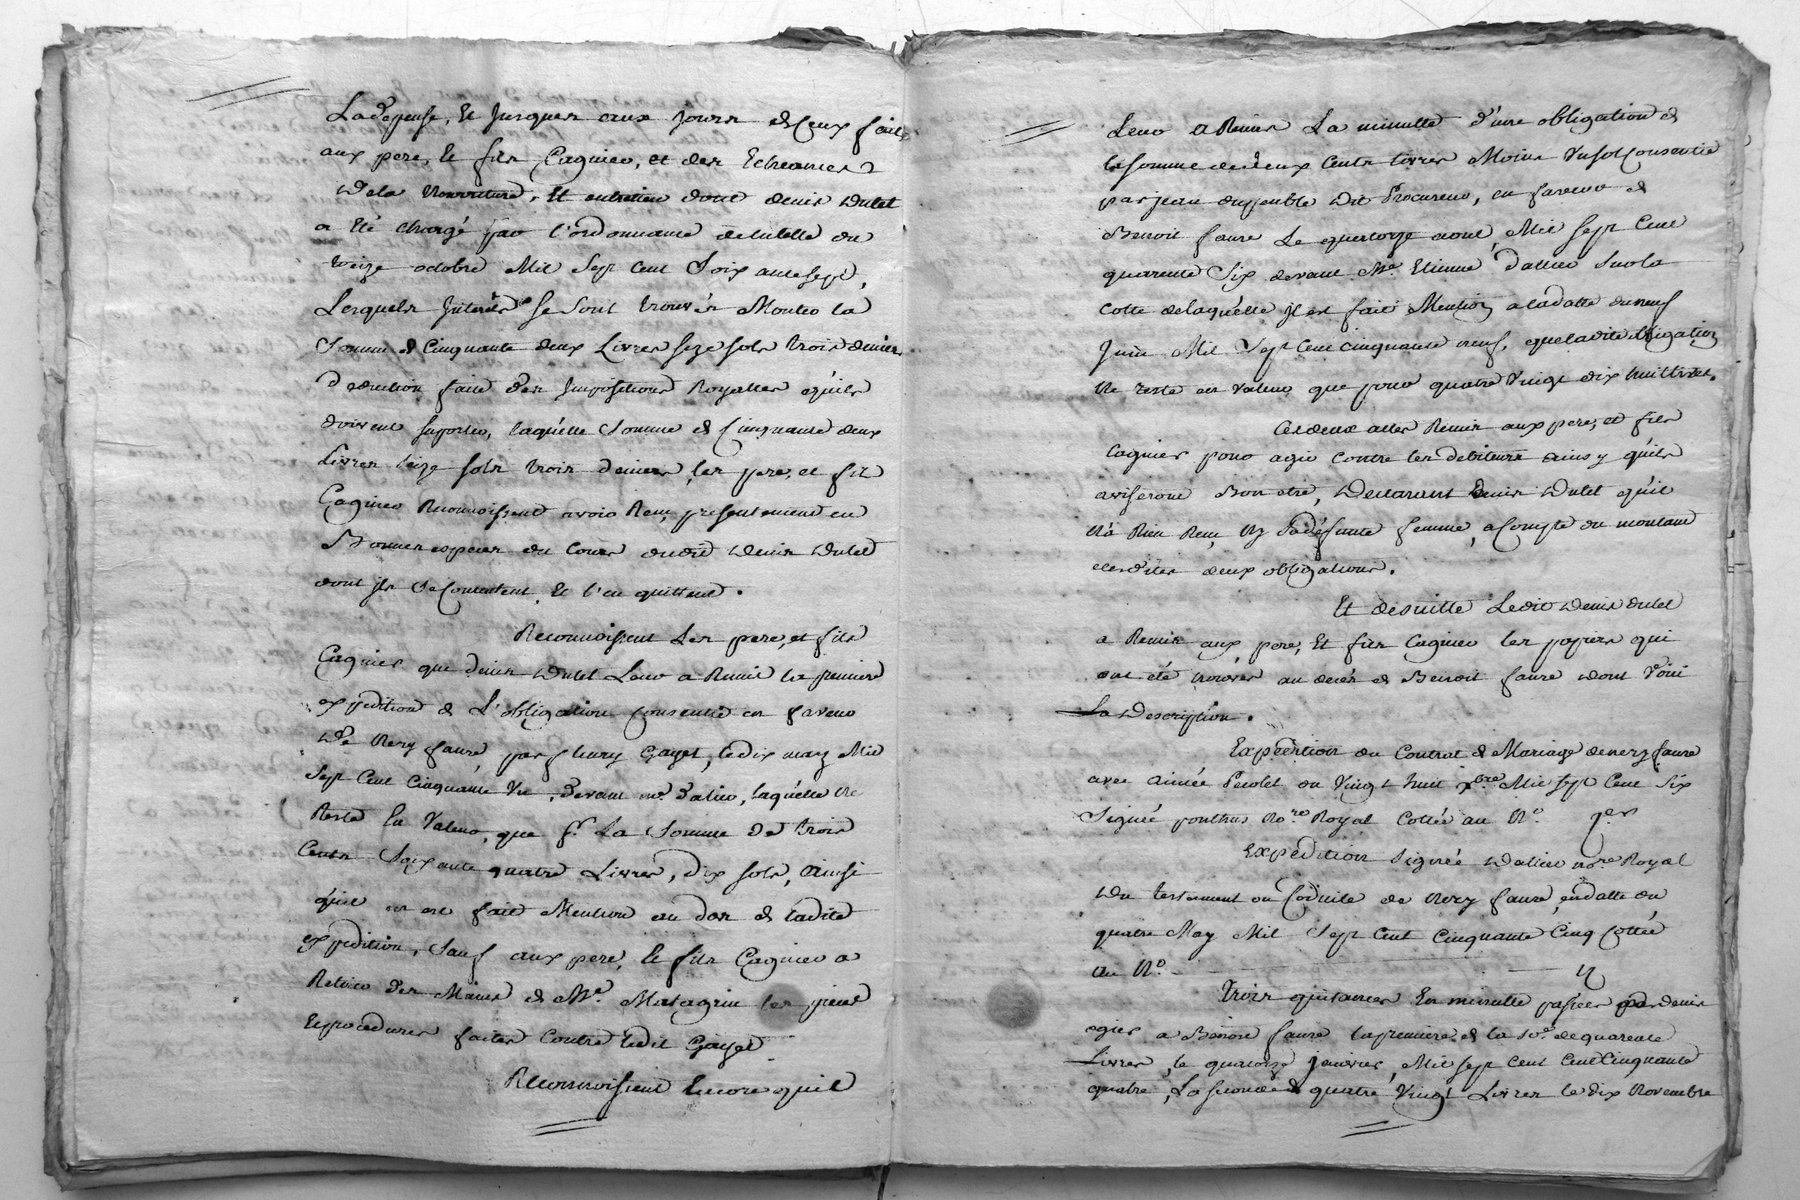 La depense, et jusques aux jours de ceux fait
aux pere, et fils Cagnieu, et des Echeances
de la Nourriture, Et entretien dont denis dulet
a été chargé par l'ordonnance de tutelle du
treize octobre Mil Sept Cent Soixante sept,
Lesquels Interets se sont trouvés Monter à la
Somme de Cinquante deux Livres seze sols trois deniers
deduction faite des Impositions Royalles qu'ils
doivent suporter, laquelle Somme de Cinquante deux
Livres seize sols trois deniers, les pere, et fils
Cagnieu Reconnoissent avoir Reçu presentement en
Bonnes especes du Cours dudit Denis Dulet
dont ils se Contentent, Et l'en quittent.
Reconnoissent Les pere, et fils
Cagnieu que denis Dulet Leur a Remis la premiere
expedition de L'obligation Consentie en faveur
De Nery faure, par fleury Gayet, le dix marz Mil
Sept Cent Cinquante Un, devant me. dalier, laquelle Ne
Reste En Valeur, que pr. La Somme De trois
Cents Soixante quatre Livres, dix sols, Ainsi
qu'il en est fait Mention au dos de ladite
expedition, Sauf aux pere, et fils Cagnieu a
Retirer des Mains de Me. Matagrin les pieces
et procedures faites Contre ledit Gayet.
Reconnoissent Encore qu'il
Leur a Remis La minutte d'une obligation de
la Somme de deux Cents livres Moins Un sol Consentie
par jean dupeuble dit Procureur, en faveur de
Benoit faure Le quatorze aout, Mil Sept Cent
quarente Six devant Me. Etienne dallier Sur la
Cotte de laquelle Il est fait Mention a la datte du neuf
Juin Mil Sept Cent cinquante neuf, que ladite obligation
Ne reste en Valeur que pour quatre Vingt dix huit livres.
Ces deux actes Remis aux pere, et fils
Cagnieu pour agir Contre les debiteurs ainsy qu'ils
aviseront Bon etre, Declarant Denis Dulet qu'il
N'a Rien Reçu, Ny Sa deffunte femme, a Compte du montant
desdites deux obligations.
Et de suitte Ledit Denis Dulet
a Remis aux pere, Et fils Cagnieu les papiers qui
ont été trouvés au décés de Benoit faure dont Voici
La Description.
Expedition du Contrat de Mariage de nery faure
avec Aimée Perolet du Vingt huit xbre. Mil Sept Cent Six
Signée ponthus Nore. Royal Cottée au N°. 1er
Expedition Signée Dalier nore. Royal
Du testament ou Codicile de Nery faure, en datte du
quatre May Mil Sept Cent Cinquante Cinq Cottée
au N°. 2
Trois quitances En minutte passées par denis
ogier a Benoit faure la premiere de la Se. de quarente
Livres, le quatorze janvier, Mil Sept Cent Cent Cinquante
quatre, La Seconde de quatre Vingt Livres le dix Novembre